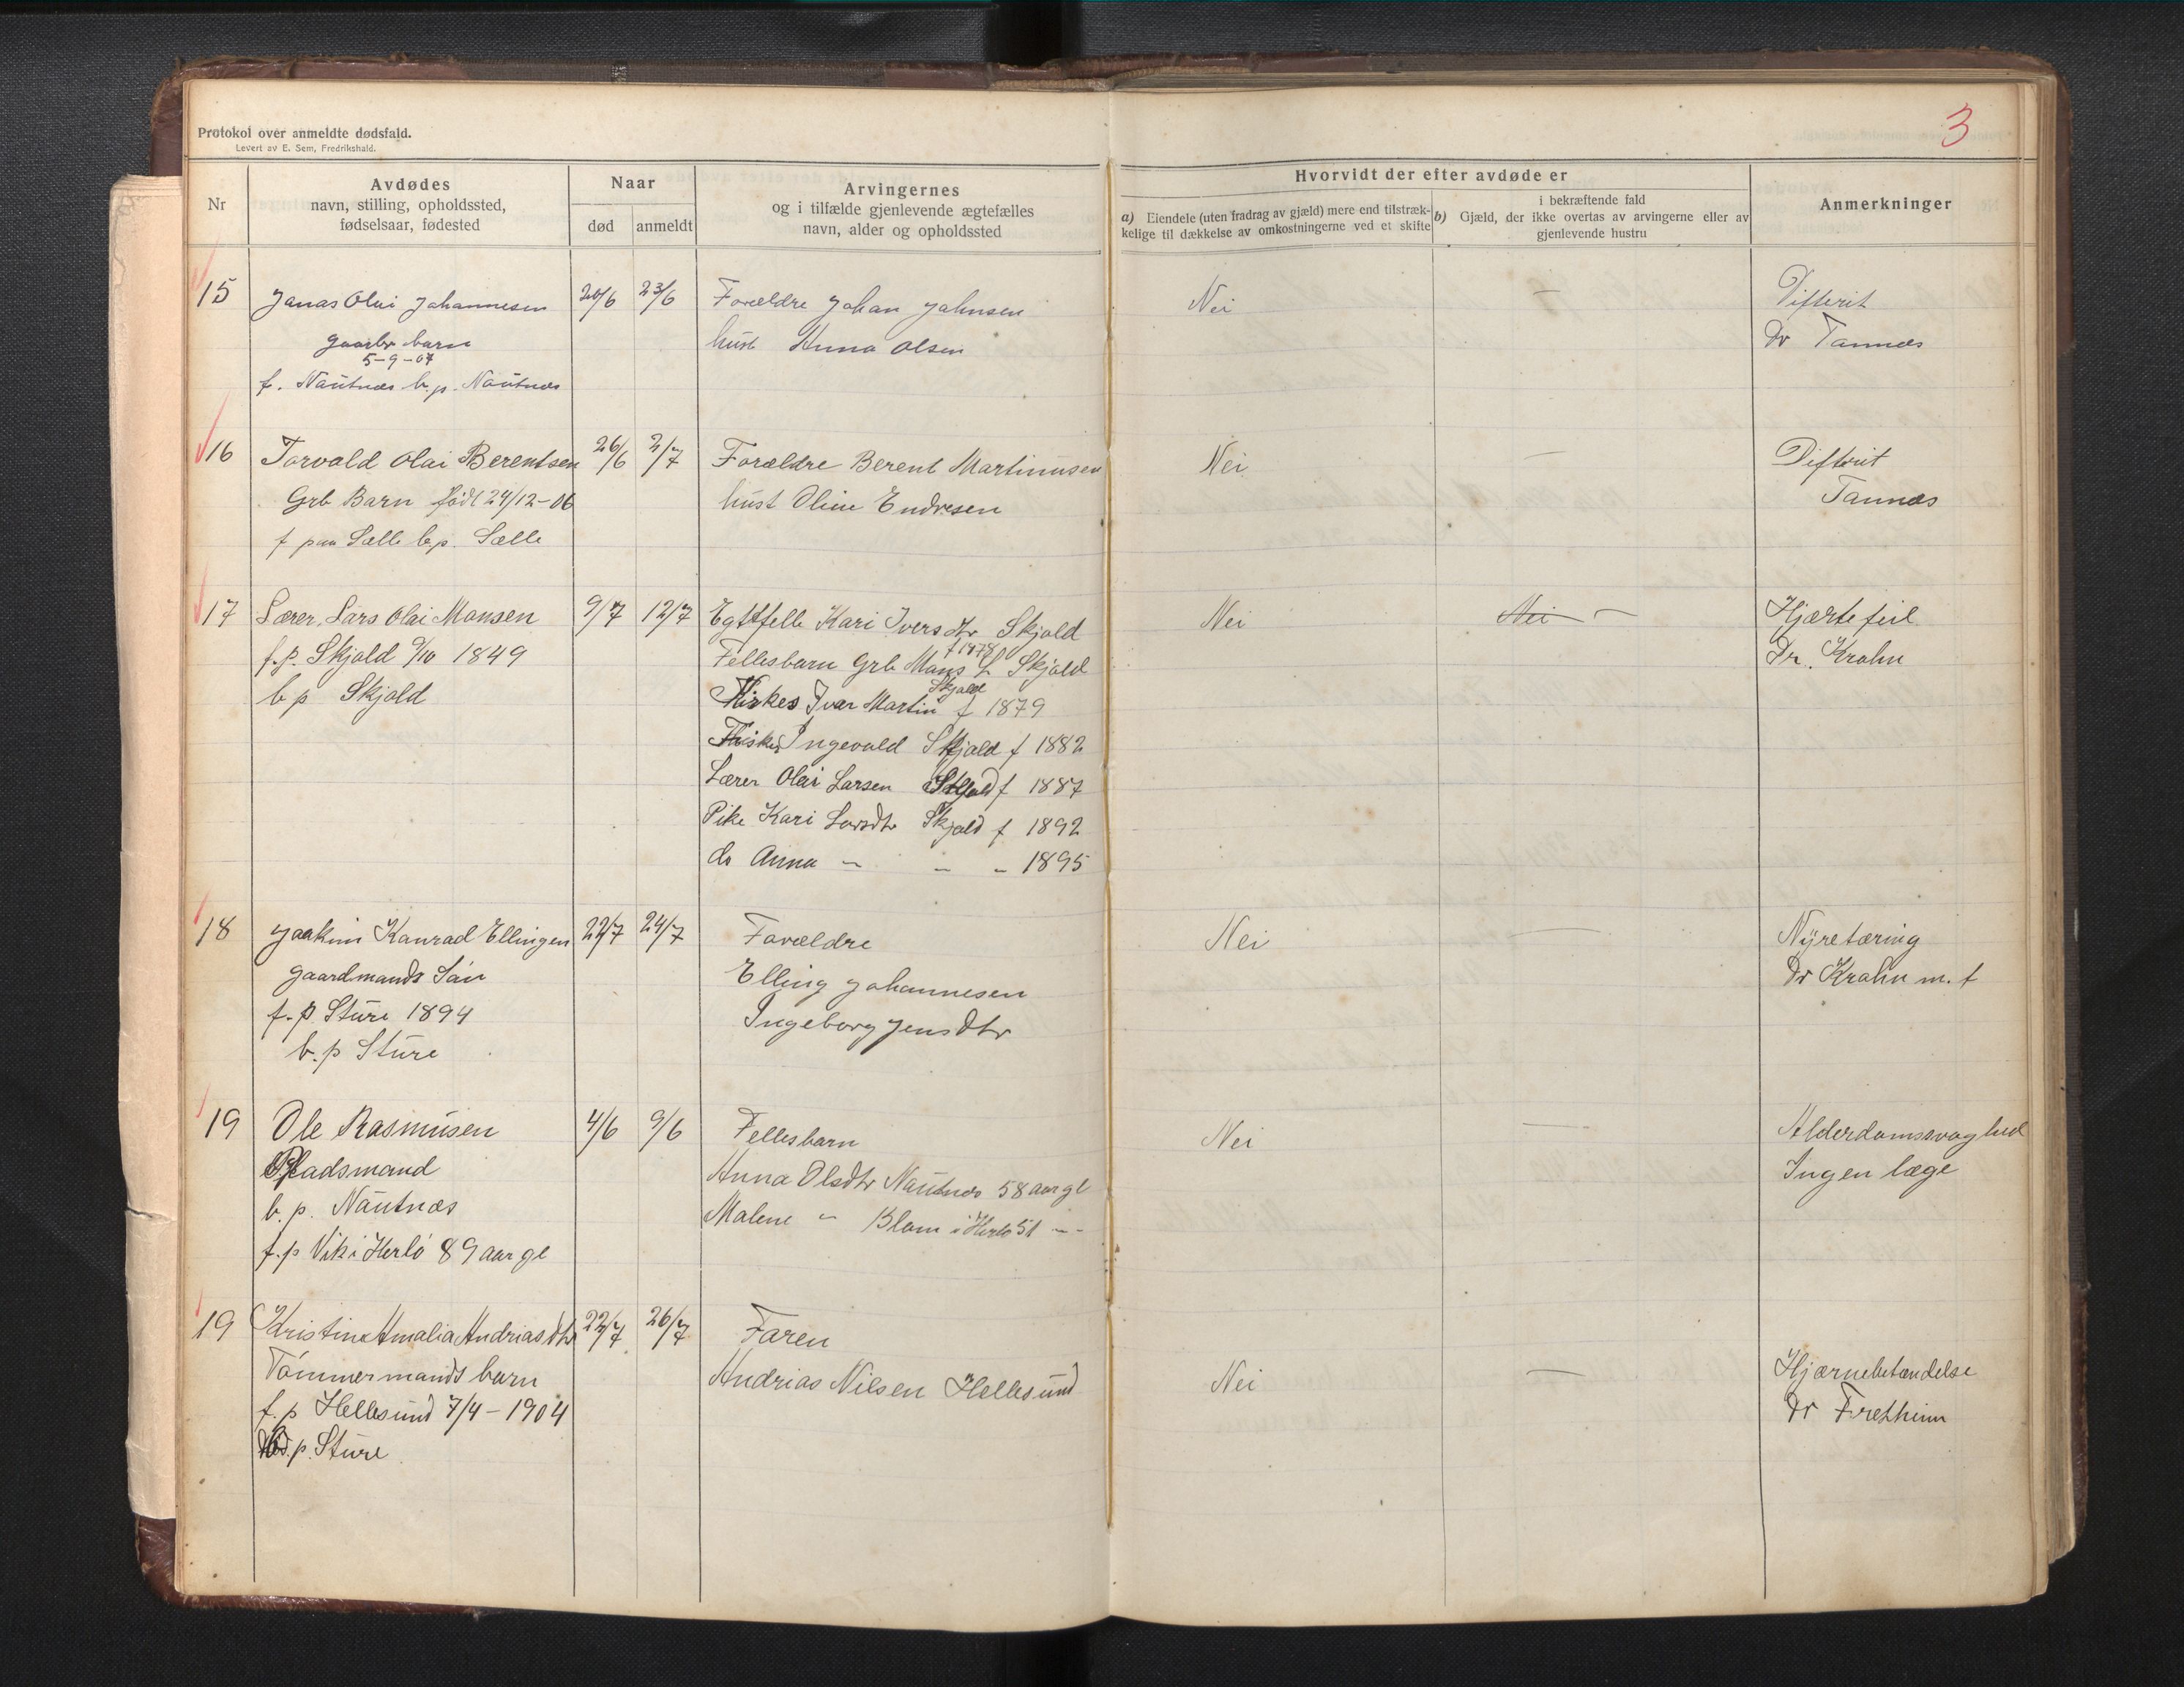 3
Protokol over anmeldte dødsfald.
Levert av E. Sem, Fredrikshald.
Nr
Avdødes
navn, stilling, opholdssted,
fødselsaar, fødested
Naar
død
anmeldt
Arvingernes
og i tilfælde gjenlevende ægtefælles
navn, alder og opholdssted
Hvorvidt der efter avdøde er
a) Eiendele (uten fradrag av gjæld) mere end tilstræk-
kelige til dækkelse av omkostningerne ved et skifte
i bekræftende fald
b) Gjæld, der ikke overtas av arvingerne eller av
gjenlevende hustru
Anmerkninger
15
Jonas Olai Johannesen
gaarbr barn
5-9-07
f. Nautnæs b.p. Nautnæs
20/6
23/6
Forældre Johan Johnsen
hust Anna Olsen
Nei
—
Difterit
Dr Tannæs
16
Torvald Olai Berentsen
Grb Barn født 24/12-06
f paa Sælle b.p. Sælle
26/6
2/7
Forældre Berent Martinusen
hust Oline Endresen
Nei
—
Difterit
Tannæs
17
Lærer Lars Olai Monsen
f.p. Skjold 9/10 1849
b p Skjold
9/7
12/7
Egtefelle Kari Iversdtr Skjold
f 1878
Fellesbarn Grb Mons L Skjold
Skjold
Ivar Martin f 1879
Fisker Ingevald Skjold f 1882
Lærer Olai Larsen Skjold f 1887
Pike Kari Larsdtr Skjold f 1892
do Anna – – – 1895
Nei
Nei —
Hjærtefeil
Dr. Krohn
18
Joakim Konrad Ellingen
gaardmands Sön
f.p Sture 1894
b.p Sture
22/7
24/7
Forældre
Elling Johannesen
Ingeborg Jensdtr
Nei
—
Nyretæring
Dr Krohn m. f
19
Ole Rasmusen
Pladsmand
b. p. Nautnæs
f.p Vik i Herlö 89 aar gl
4/6
9/6
Fellesbarn
Anna Olsdtr Nautnæs 58 aar gl
Malene – Blom i Herlö 51 – –
Nei
—
Alderdomssvaghed
Ingen læge
19
Kristine Amalia Andriasdtr
Tömmermands barn
f. p Hellesund 7/4 – 1904
p. Sture
22/7
26/7
Faren
Andrias Nilsen Hellesund
Nei
—
Hjærnebetændelse
Dr Fretheim